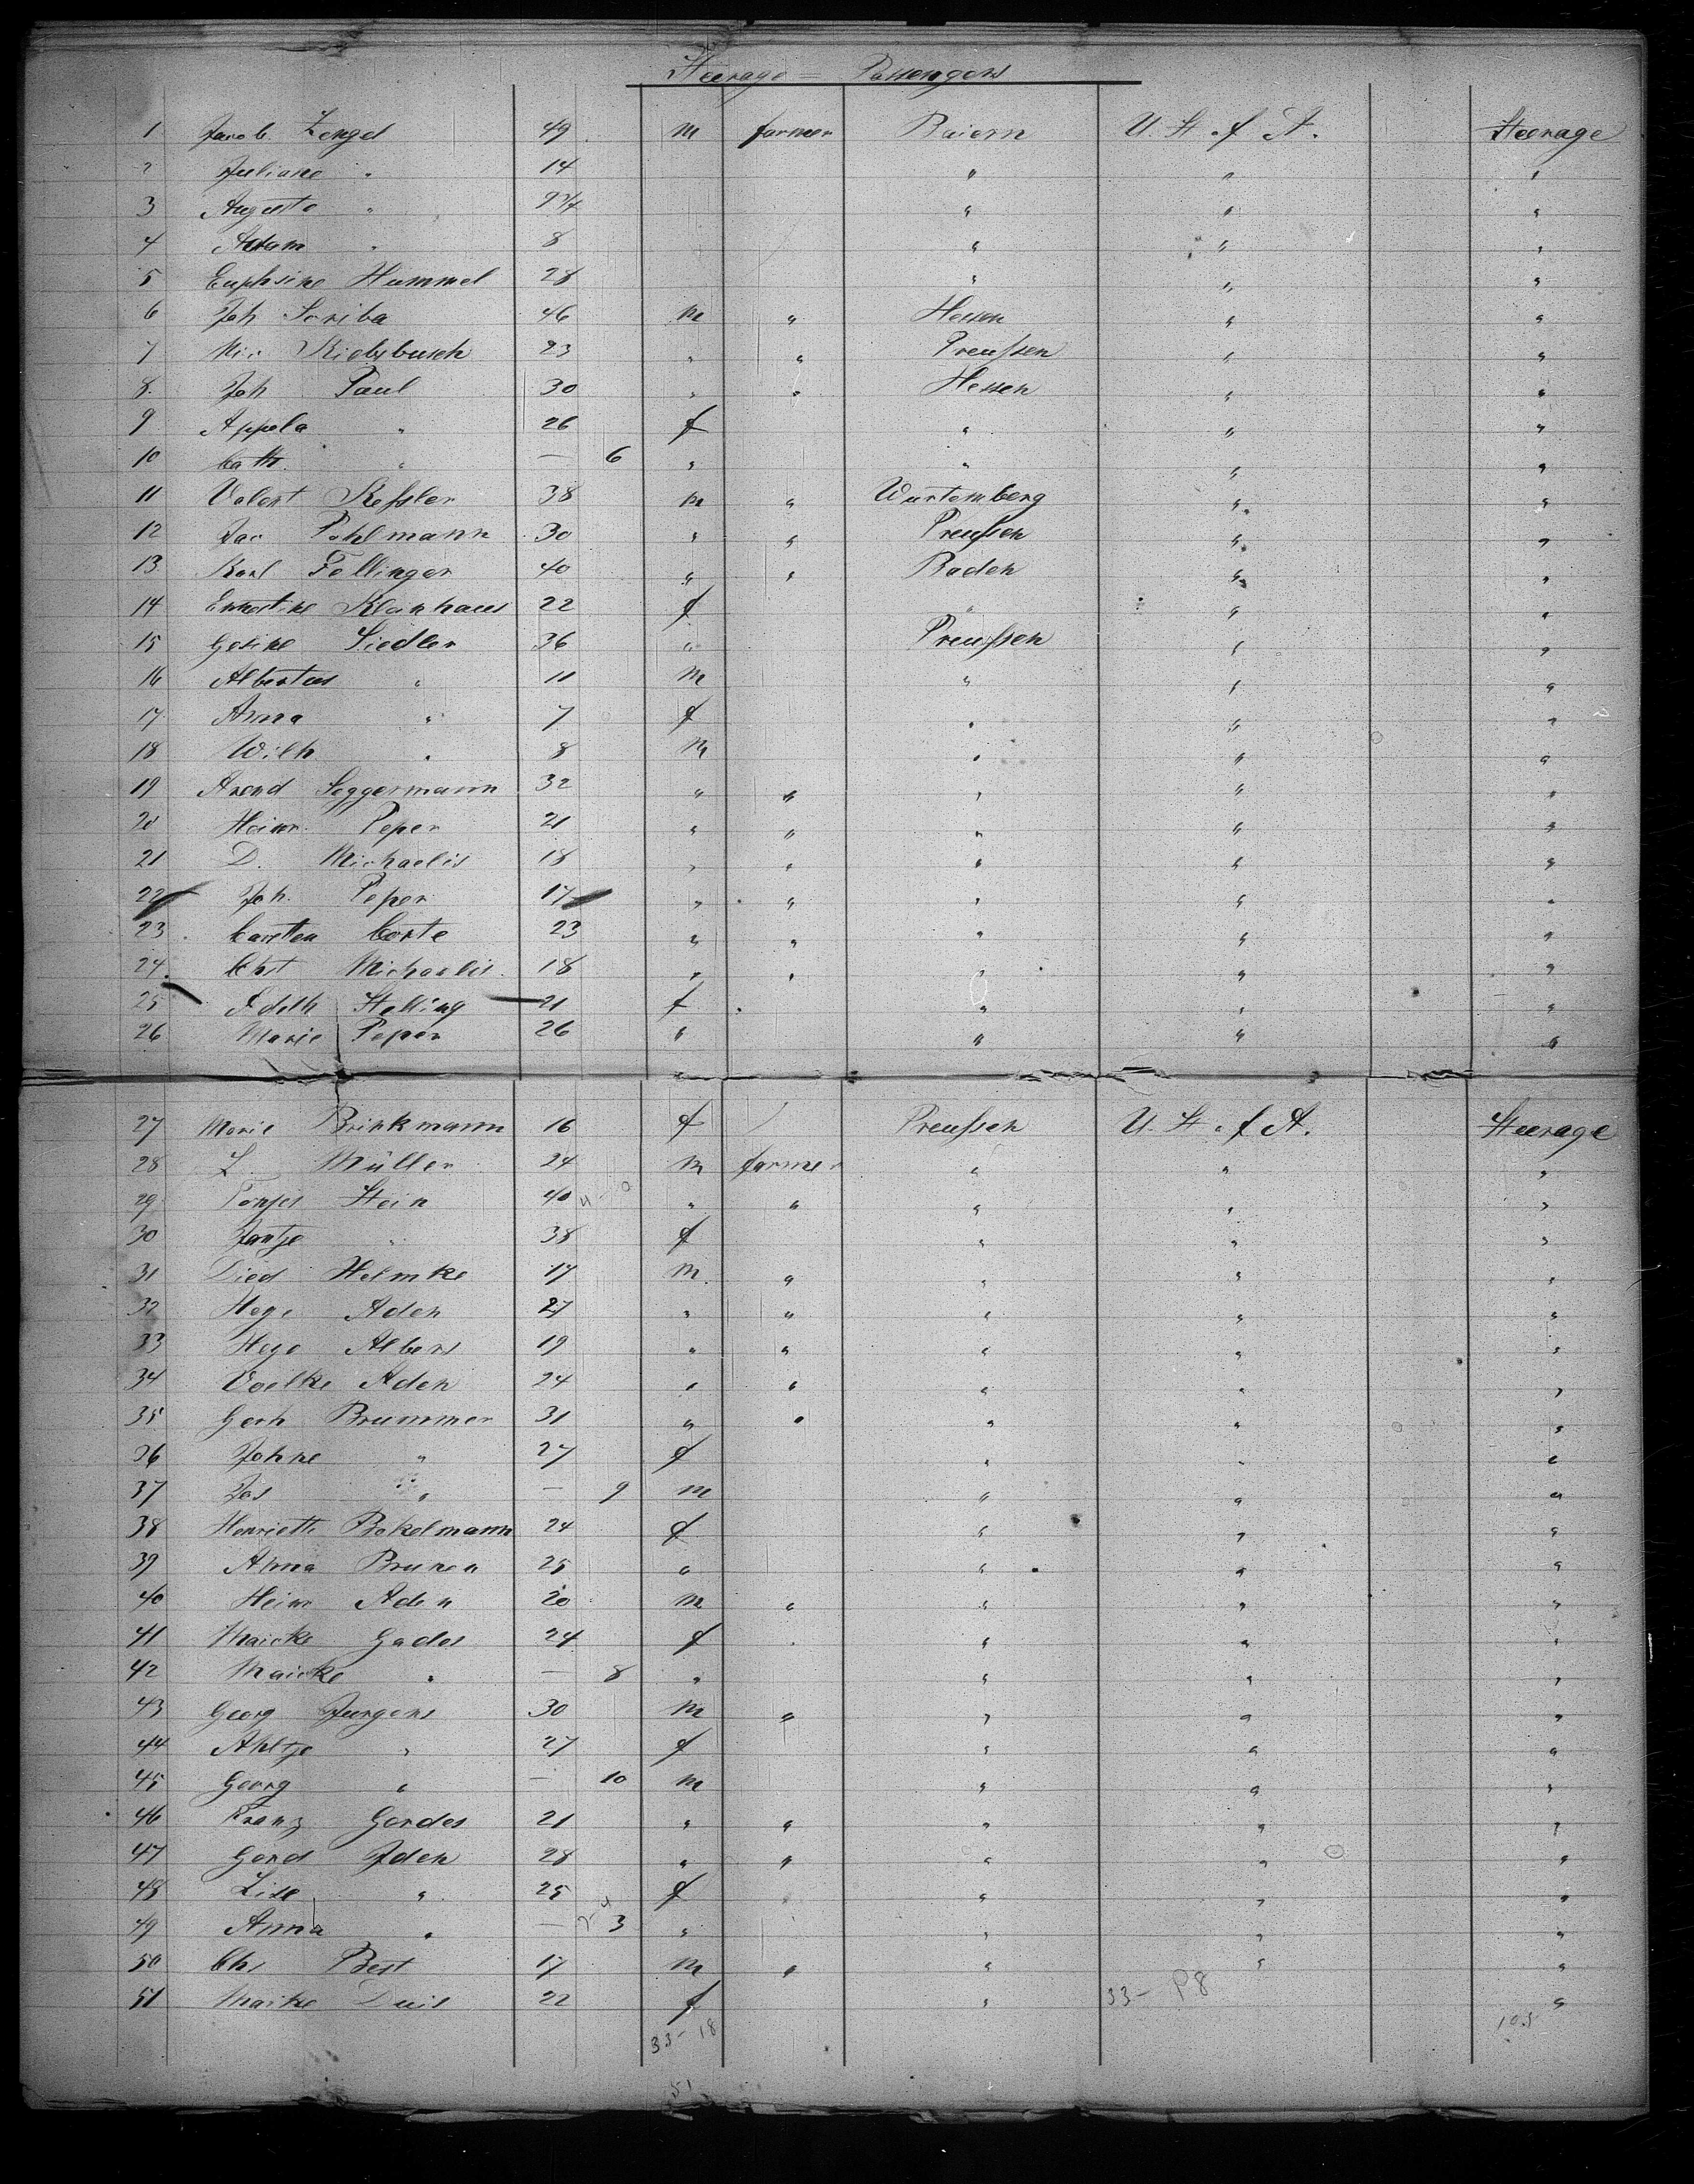 Steerage = Passengers
1 Jacob Zengel 49 m farmer Baiern U. St. of A. Steerage
2 Juliane " 14 " " "
3 Auguste " 9 3/4 " " "
4 Adam " 8 " " "
5 Euphsine Hummel 28 " " "
6 Joh Scriba 46 m " Hessen " "
7 Nic Riebsbusch 23 " " Preußen " "
8. Joh Paul 30 " " Hessen " "
9 Appola " 26 f " " "
10 Cath. " — 6 " " " "
11 Valent Keßler 38 m " Wurtemberg " "
12 Jac Pohlmann 30 " " Preußen " "
13 Karl Fellinger 40 " " Baden " "
14 Ernestine Klanhaus 22 f " " "
15 Gesine Siedler 36 " Preußen " "
16 Albertus " 11 m " " "
17 Anna " 7 f " " "
18 Wilh " 8 m " " "
19 Arend Seggermann 32 " " " " "
20 Heinr. Peper 21 " " " " "
21 D. Michaelis 18 " " " " "
22 Joh. Peper 17 " " " " "
23 Carsten Corte 23 " " " " "
24. Chst Michaelis 18 " " " " "
25 Adelh Stelling 21 f " " "
26 Marie Peper 26 " " " "
27 Marie Brinkmann 16 f Preußen U. St. of A. Steerage
28 L. Müller 24 m farmer " " "
29 Tonjes Stein 40 " " " " "
30 Jantje " 38 f " " "
31 Died Helmke 17 m " " " "
32 Heye Aden 27 " " " " "
33 Heyo Albers 19 " " " " "
34 Voelke Aden 24 " " " " "
35 Gerh Brummer 31 " " " " "
36 Johne " 27 f " " "
37 Jos " — 9 m " " "
38 Henriette Bekelmann 24 f " " "
39 Anna Brunen 25 " " " "
40 Heinr Aden 20 m " " " "
41 Maicke Gades 24 f " " "
42 Maicke " — 8 " " " "
43 Georg Jurgens 30 m " " " "
44 Ahltje " 27 f " " "
45 Georg " — 10 m " " "
46 Franz Gerdes 21 " " " " "
47 Gerd Iden 28 " " " " "
48 Lise " 25 f " " "
49 Anna " — 3 " " " "
50 Chr Best 17 m " " " "
51 Maike Duis 22 f " 33- P8 "
33-18 10.5
51